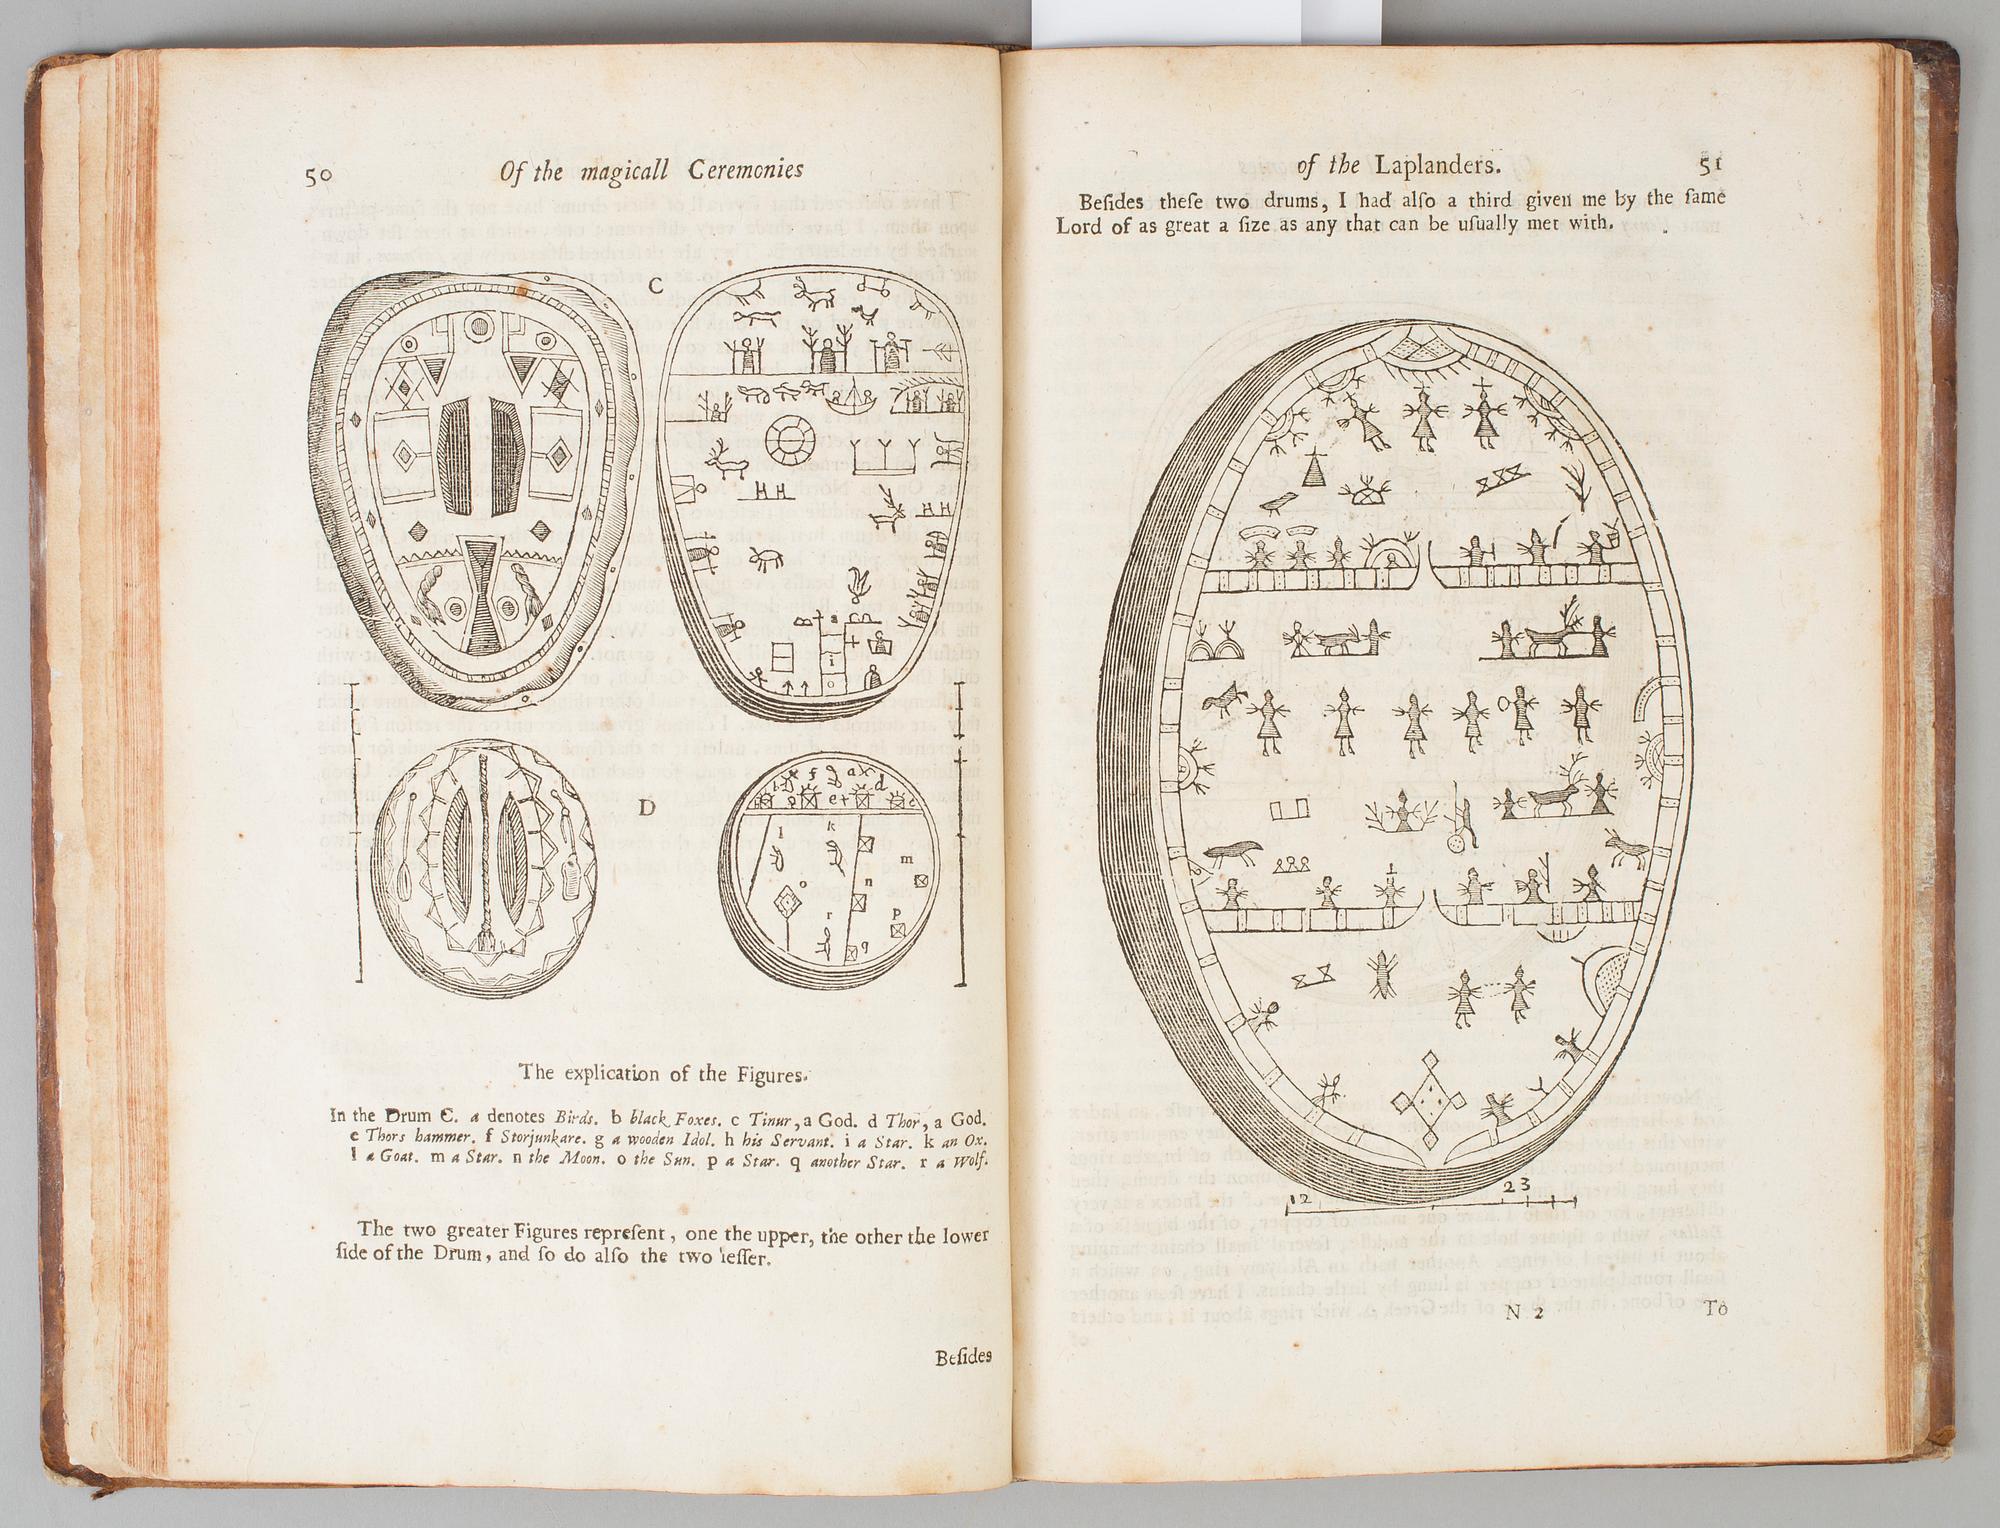 50
Of the magicall Ceremonies
C
D
a
d
f
e
k
l
m
n
o
p
r
q
The explication of the Figures.
In the Drum C. a denotes Birds. b black Foxes. c Tinur, a God. d Thor, a God.
e Thors hammer. f Storjunkare. g a wooden Idol. h his Servant. i a Star. k an Ox.
l a Goat. m a Star. n the Moon. o the Sun. p a Star. q another Star. r a Wolf.
The two greater Figures repreſent, one the upper, the other the lower
ſide of the Drum, and ſo do alſo the two leſſer.
Beſides
of the Laplanders.
51
Beſides theſe two drums, I had alſo a third given me by the ſame
Lord of as great a ſize as any that can be uſually met with.
12
23
N 2
To